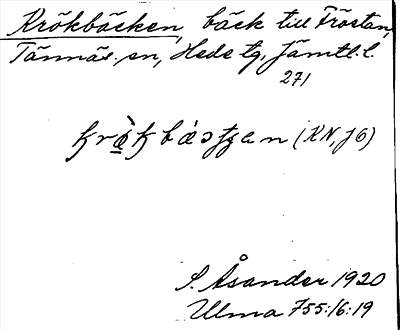 Krökbäcken, bäck till Fröstan,
Tännäs sn, Hede tg, Jämtl. l.
271
(KN, JÖ)
S. Åsander 1920
Ulma 755:16:19